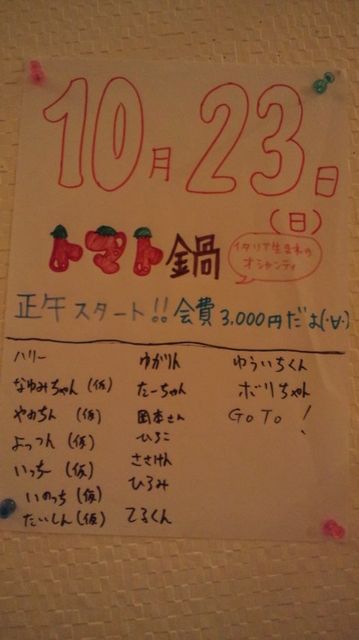 10月23日
(日)
トマト鍋
イタリア生まれの
オシャンティ
正午スタート!! 会費3,000円だよ(·∀·)
ハリー
なゆみちゃん(仮)
やおちん(仮)
よっつん(仮)
いっちー(仮)
いのっち(仮)
たいしん(仮)
ゆかりん
たーちゃん
岡本さん
ひろこ
ささけん
ひろみ
てるくん
ゆういちくん
ボリちゃん
GOTO!